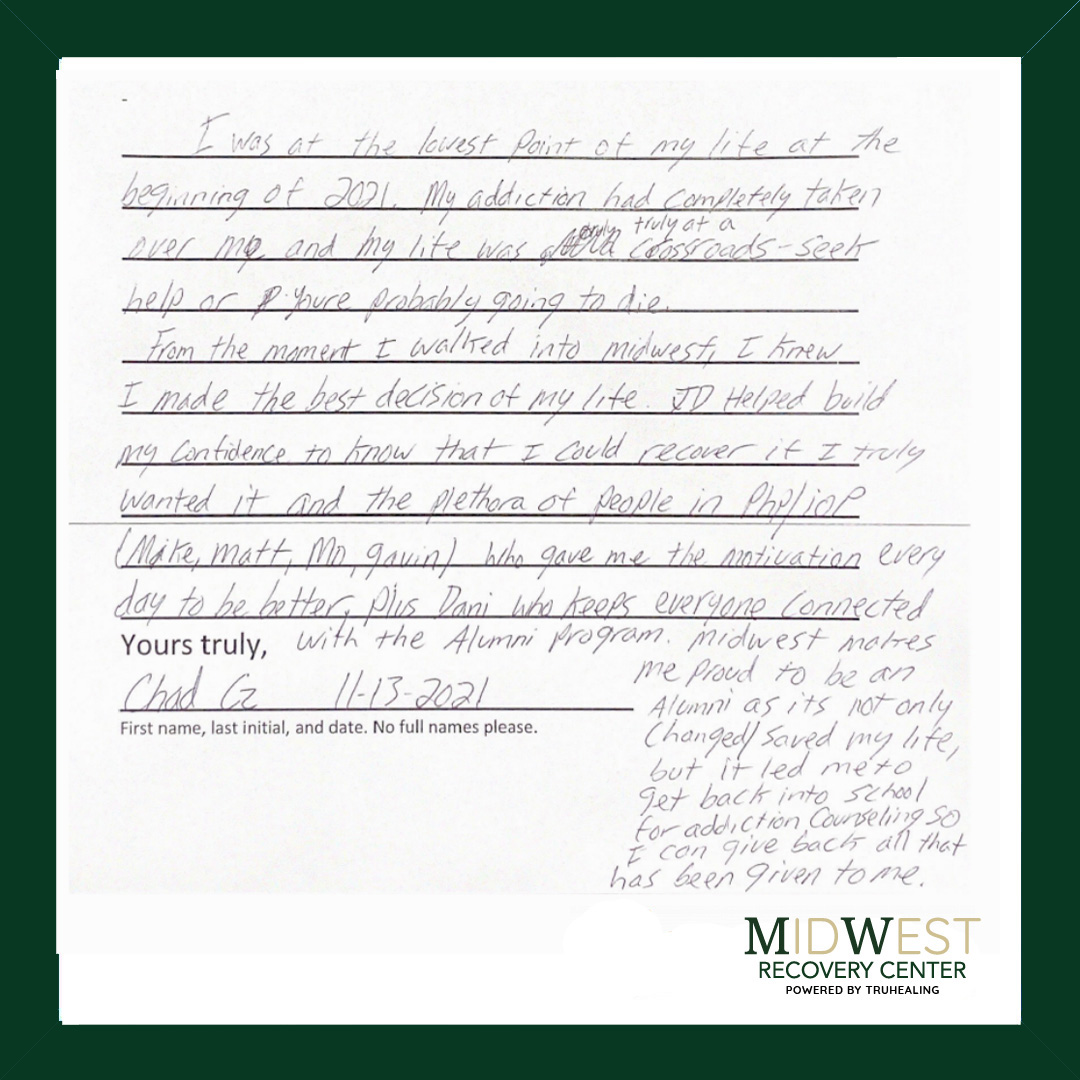 I was at the lowest point of my life at the
beginning of 2021. My addiction had completely taken
over me, and my life was truly at a crossroads - seek
help or youre probably going to die.
From the moment I walked into midwest, I knew
I made the best decision of my life. JD Helped build
my confidence to know that I could recover if I truly
wanted it and the plethora of people in Php/iop
(Mike, matt, Mo, gavin) who gave me the motivation every
day to be better, plus Dani who keeps everyone connected
Yours truly, with the Alumni program. Midwest makes
me proud to be an
Chad G 11-13-2021
Alumni as its not only
First name, last initial, and date. No full names please.
Changed/saved my life,
but it led me to
get back into school
for addiction Counseling so
I can give back all that
has been given to me.
MIDWEST
RECOVERY CENTER
POWERED BY TRUHEALING